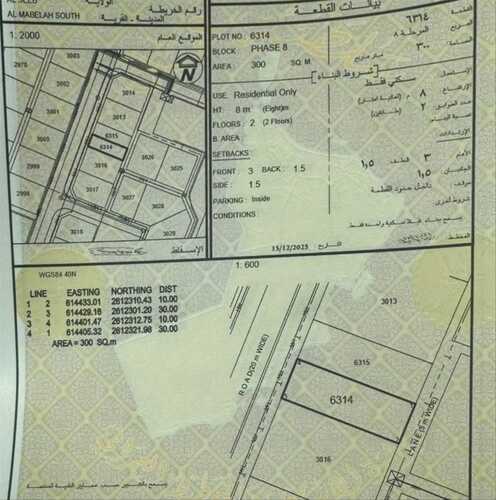 AL SEEB
الولاية
رقم الخريطة
AL MABELAH SOUTH
المدينة - القرية
1: 2000
الموقع العام
3014
3013
6315
6314
3016
3017
3018
3026
3025
3021
3022
2999
2998
الإسقاط
بيانات القطعة
PLOT NO : 6314
٦٣١٤
BLOCK : PHASE 8
المرحلة ٨
المربع
AREA : 300 SQ. M
متر مربع
٣٠٠
المساحة
شروط البناء
USE : Residential Only
سكني فقط
الاستعمال
HT : 8 m (Eight)m
٨ م
الارتفاع
FLOORS : 2 (2 Floors)
٢
عدد الطوابق
B. AREA :
SETBACKS
الإرتدادات
FRONT : 3 BACK : 1.5
الأمام ٣ الخلف ١,٥
SIDE : 1.5
١,٥
الجانبين
PARKING : Inside
داخل حدود القطعة
CONDITIONS
شروط أخرى
15/12/2025
التاريخ
المخطط
WGS84 40N
LINE EASTING NORTHING DIST
1 2 614433.01 2612310.43 10.00
2 3 614429.16 2612301.20 30.00
3 4 614401.47 2612312.75 10.00
4 1 614405.32 2612321.98 30.00
AREA = 300 SQ.m
1: 600
3013
6315
6314
3016
ROAD(20 m WIDE)
LANE (5 m WIDE)